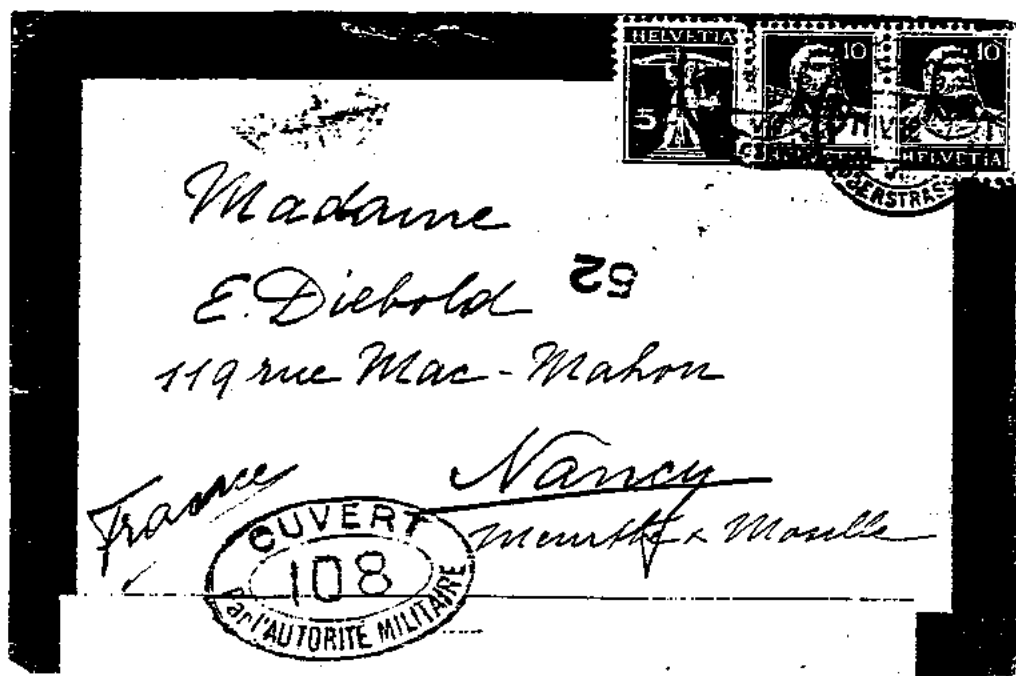 HELVETIA
5
10
10
HELVETIA
Madame
E. Diebold
52
119 rue Mac-Mahon
Nancy
France
Meurthe & Moselle
OUVERT
108
Par l'AUTORITÉ MILITAIRE